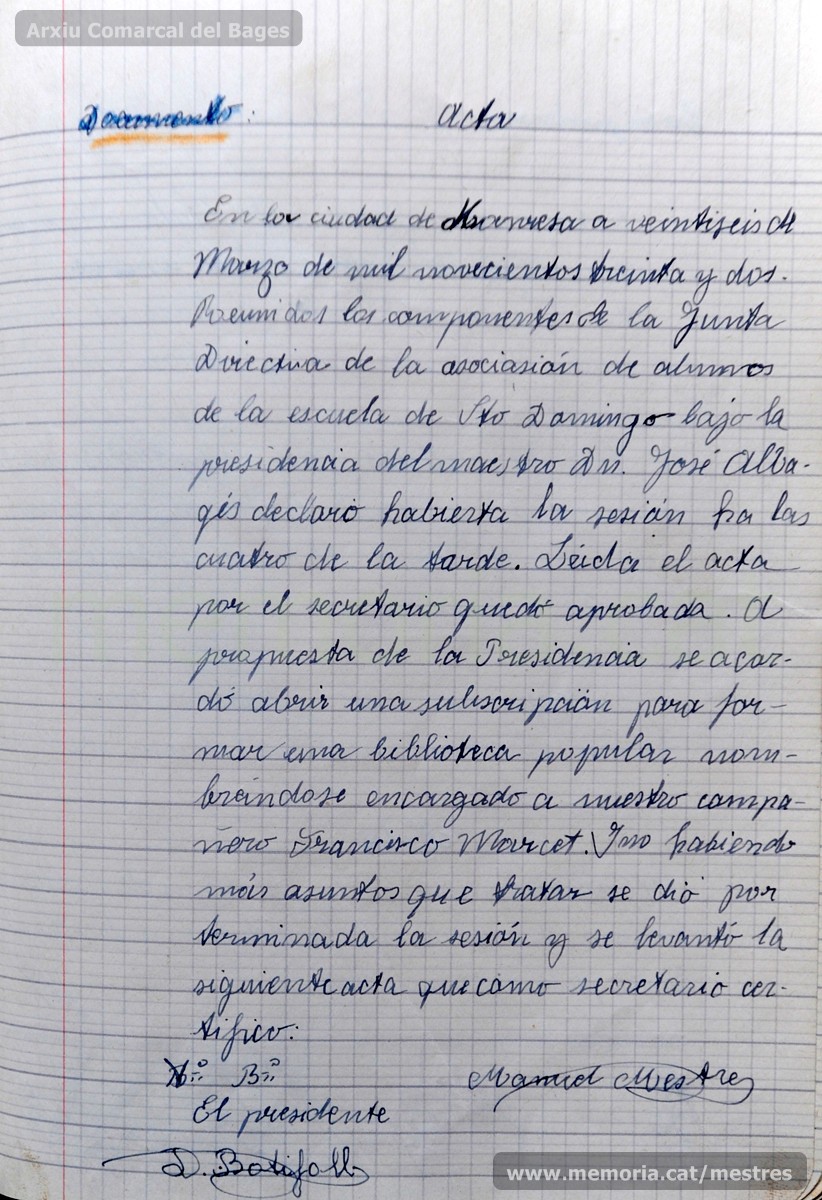 Arxiu Comarcal del Bages
Documento: Acta
En la ciudad de Manresa a veintiseis de
Marzo de mil novecientos treinta y dos.
Reunidos los componentes de la Junta
Directiva de la asociasión de alumnos
de la escuela de Sto Domingo bajo la
presidencia del maestro Dn. José Alba-
gés declaró habierta la sesión ha las
cuatro de la tarde. Léida el acta
por el secretario quedó aprobada. A
propuesta de la Presidencia se acor-
dó abrir una subscripción para for-
mar una biblioteca popular nom-
brándose encargado a nuestro compa-
ñero Francisco Marcet. Y no habiendo
más asuntos que tratar se dió por
terminada la sesión y se levantó la
siguiente acta que como secretario cer-
tifico:
Vº Bº Manuel Mestres
El presidente
D. Botifoll
www.memoria.cat/mestres